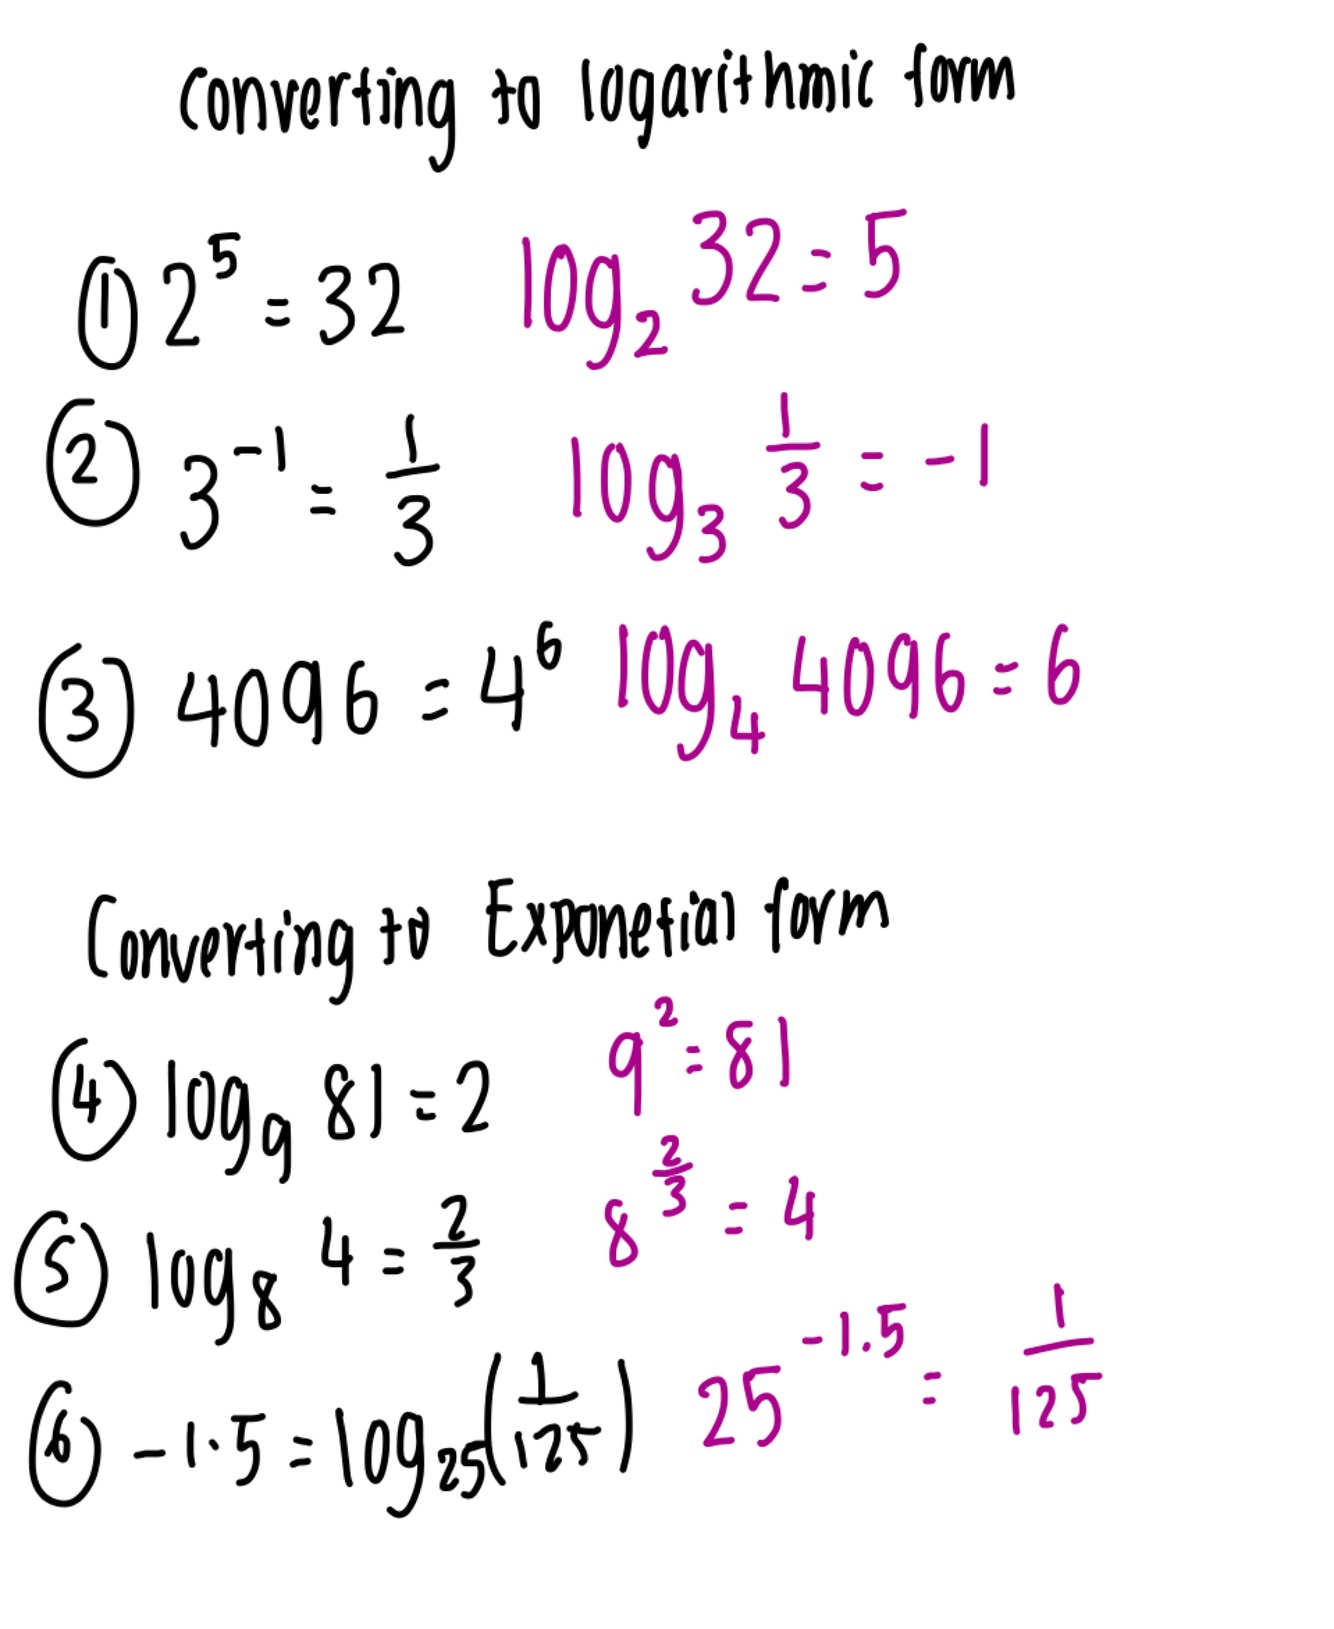 Converting to logarithmic form
① 2⁵ = 32 log₂ 32 = 5
② 3⁻¹ = 1/3 log₃ 1/3 = -1
③ 4096 = 4⁶ log₄ 4096 = 6
Converting to Exponetial form
④ log₉ 81 = 2 9² = 81
⑤ log₈ 4 = 2/3 8^(2/3) = 4
⑥ -1.5 = log₂₅(1/125) 25^(-1.5) = 1/125